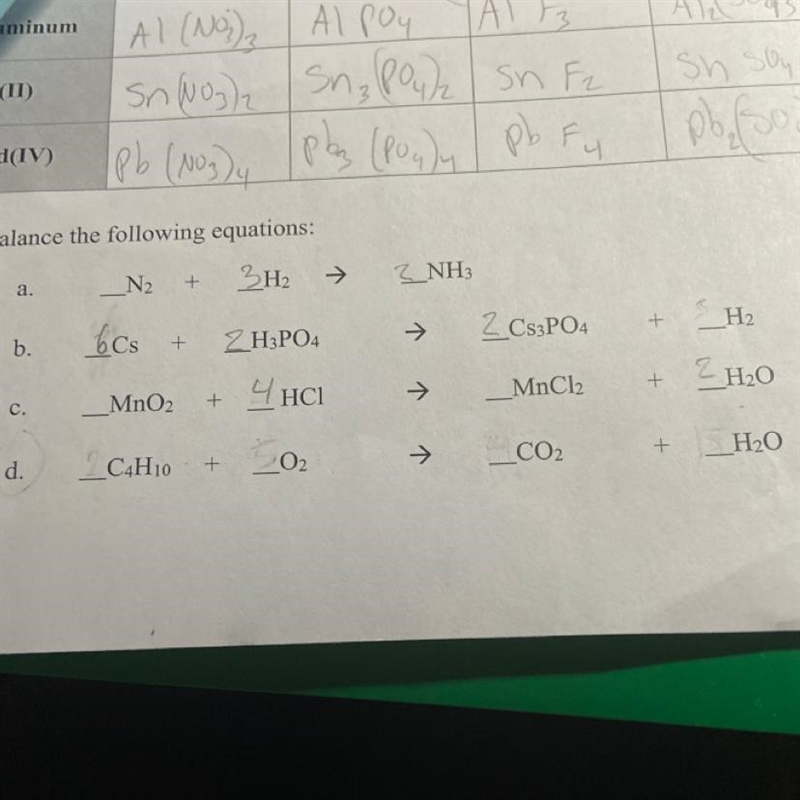 uminum Al (NO3)3 Al PO4 Al F3
(II) Sn (NO3)2 Sn3 (PO4)2 Sn F2 Sn SO4
d(IV) Pb (NO3)4 Pb3 (PO4)4 Pb F4 Pb2(SO
alance the following equations:
a. _N2 + 3H2 → 2_NH3
b. 6Cs + 2H3PO4 → 2 Cs3PO4 + _H2
c. _MnO2 + 4 HCl → _MnCl2 + 2 H2O
d. _C4H10 + _O2 → _CO2 + _H2O